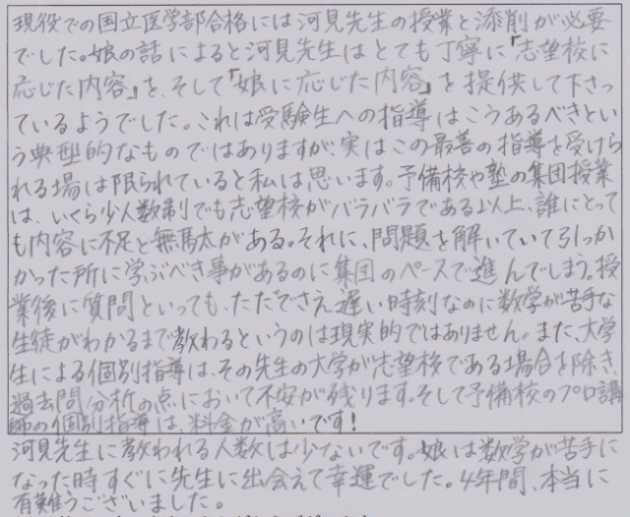 現役での国立医学部合格には河見先生の授業と添削が必要
でした。娘の話によると河見先生はとても丁寧に『志望校に
応じた内容』を、そして『娘に応じた内容』を提供して下さっ
ているようでした。これは受験生への指導はこうあるべきとい
う典型的なものではありますが、実はこの最善の指導を受けら
れる場は限られていると私は思います。予備校や塾の集団授業
は、いくら少人数制でも志望校がバラバラである以上、誰にとって
も内容に不足と無駄がある。それに、問題を解いていて引っか
かった所に学ぶべき事があるのに集団のペースで進んでしまう。授
業後に質問といっても、ただでさえ遅い時刻なのに数学が苦手な
生徒がわかるまで教わるというのは現実的ではありません。また、大学
生による個別指導は、その先生の大学が志望校である場合を除き、
過去問分析の点において不安が残ります。そして予備校のプロ講
師の個別指導は、料金が高いです!
河見先生に教われる人数は少ないです。娘は数学が苦手に
なった時すぐに先生に出会えて幸運でした。4年間、本当に
有難うございました。